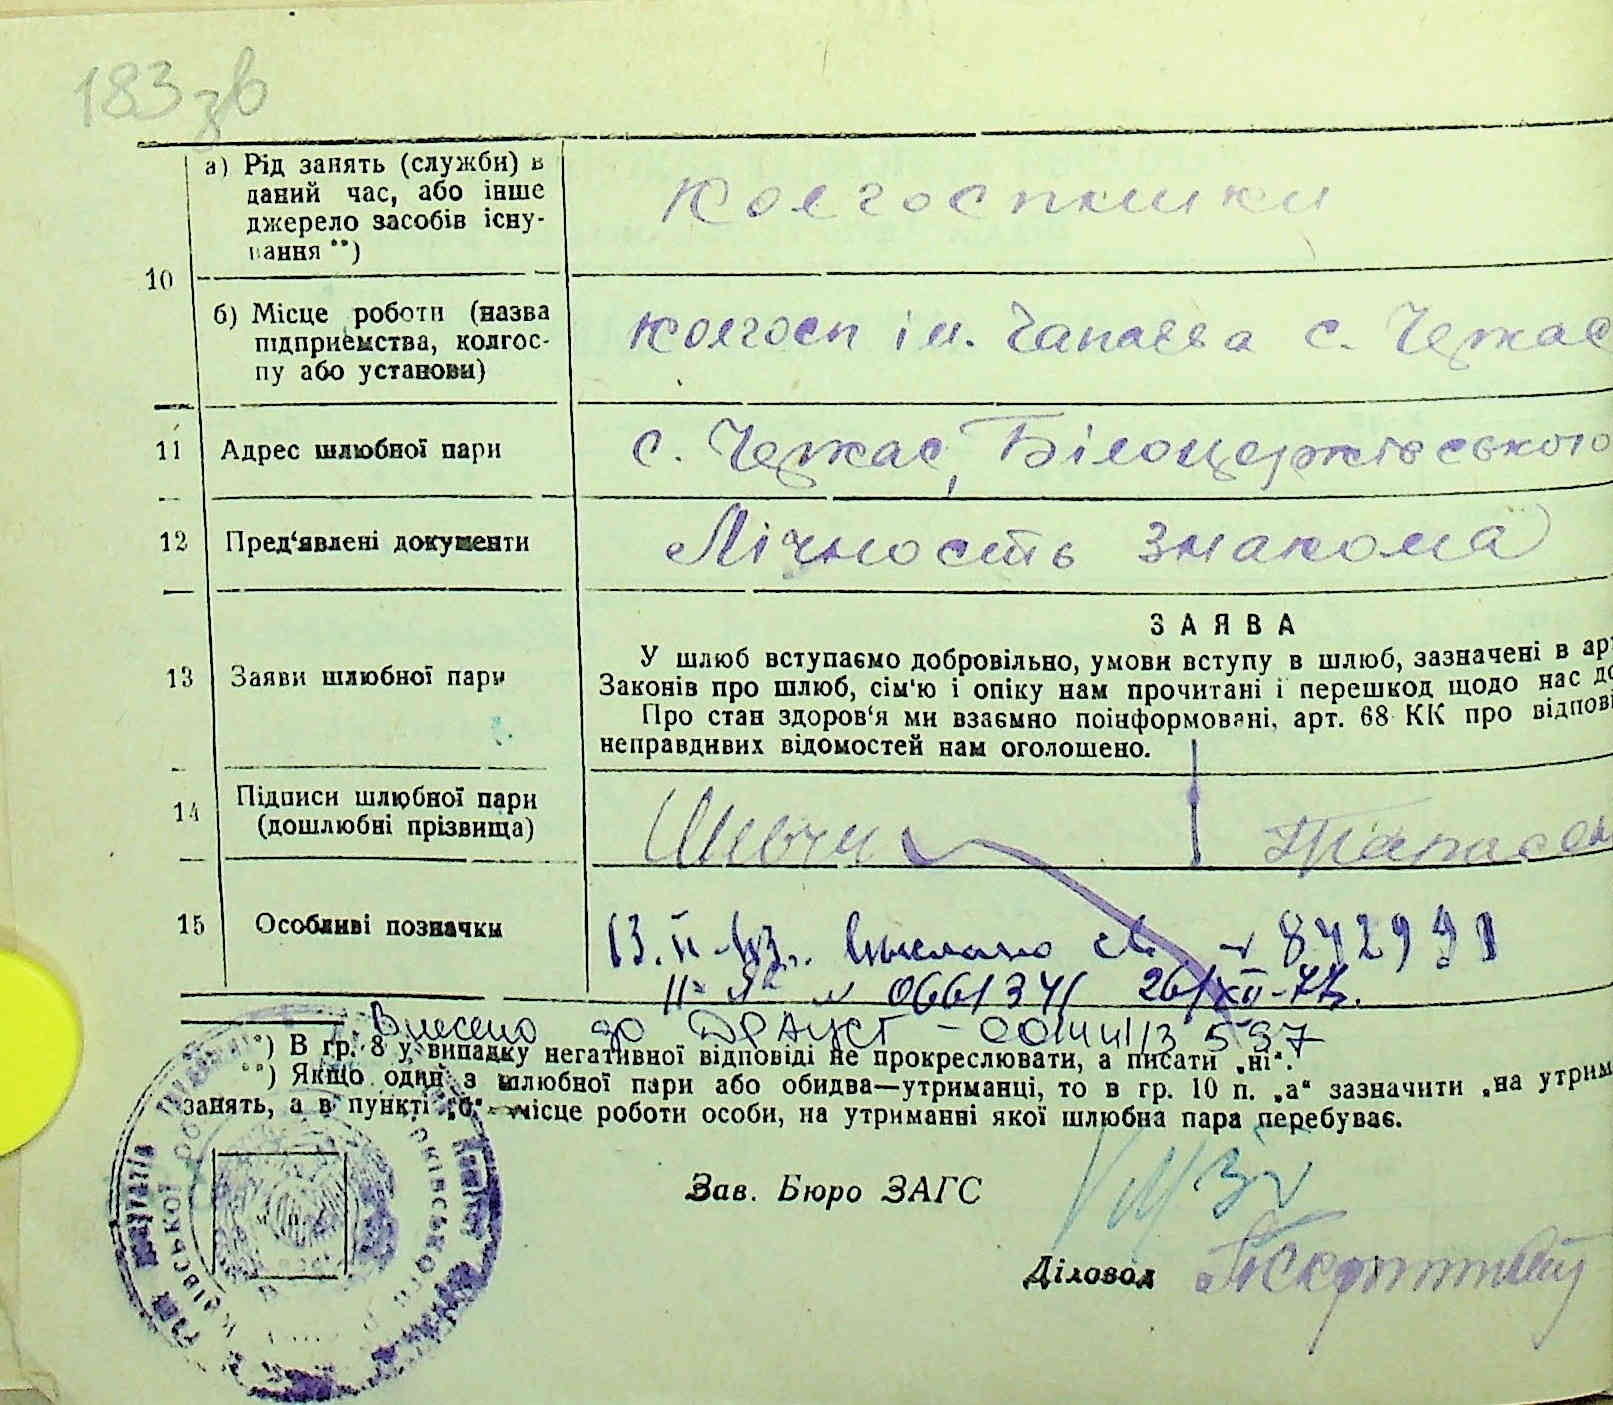 183 зв
а) Рід занять (служби) в
даний час, або інше
джерело засобів існу-
вання **)
Колгоспники
10
б) Місце роботи (назва
підприємства, колгос-
пу або установи)
колгосп ім. Чапаєва с. Чепкас
11 Адрес шлюбної пари
с. Чепкас, Білоцерківського
12 Пред'явлені документи
Лічность знакома
ЗАЯВА
13 Заяви шлюбної пари
У шлюб вступаємо добровільно, умови вступу в шлюб, зазначені в ар
Законів про шлюб, сім'ю і опіку нам прочитані і перешкод щодо нас до
Про стан здоров'я ми взаємно поінформовані, арт. 68 КК про відпові
неправдивих відомостей нам оголошено.
14 Підписи шлюбної пари
(дошлюбні прізвища)
15 Особливі позначки
№ 872991
№ 0661371 26/XII-77р.
Внесено до ДРАЦСГ - 00144113597
*) В гр. 8 у випадку негативної відповіді не прокреслювати, а писати „ні“.
**) Якщо один з шлюбної пари або обидва—утриманці, то в гр. 10 п. „а“ зазначити „на утрим
занять, а в пункті „б“—місце роботи особи, на утриманні якої шлюбна пара перебуває.
Зав. Бюро ЗАГС
Діловод